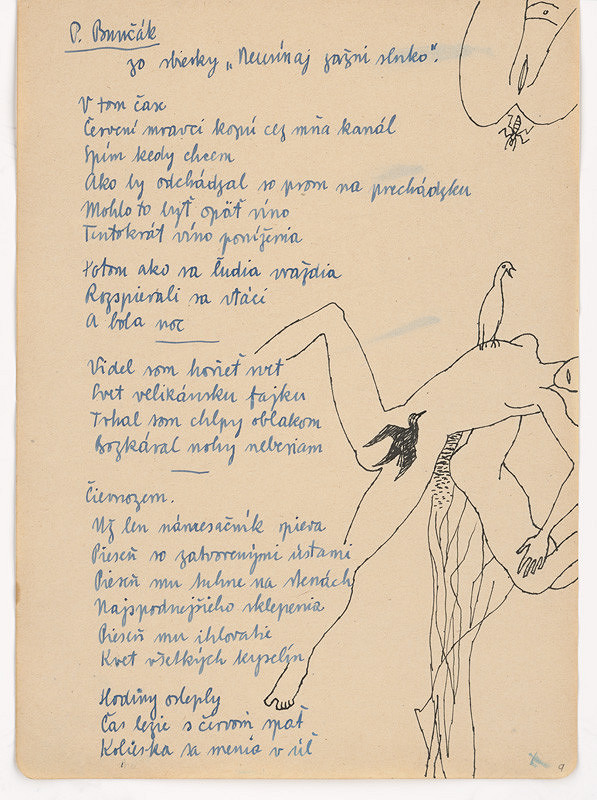 P. Bunčák
zo sbierky „Neusínaj zažni slnko".
V tom čase
Červení mravci kopú cez mňa kanál
Spím kedy chcem
Ako by odchádzal so psom na prechádzku
Mohlo to byť opäť víno
Tentokrát víno poníženia
Potom ako sa ľudia vraždia
Rozspievali sa vtáci
A bola noc
Videl som horieť svet
Svet velikánsku fajku
Trhal som chlpy oblakom
Bozkával nohy neberiam
Čiernozem.
Už len námesačník spieva
Pieseň so zatvorenými ústami
Pieseň mu tuhne na stenách
Najspodnejšieho sklepenia
Pieseň mu ihlovatie
Kvet všetkých kyselín
Hodiny osleply
Čas lezie s červom spať
Kolieska sa menia v úľ
9